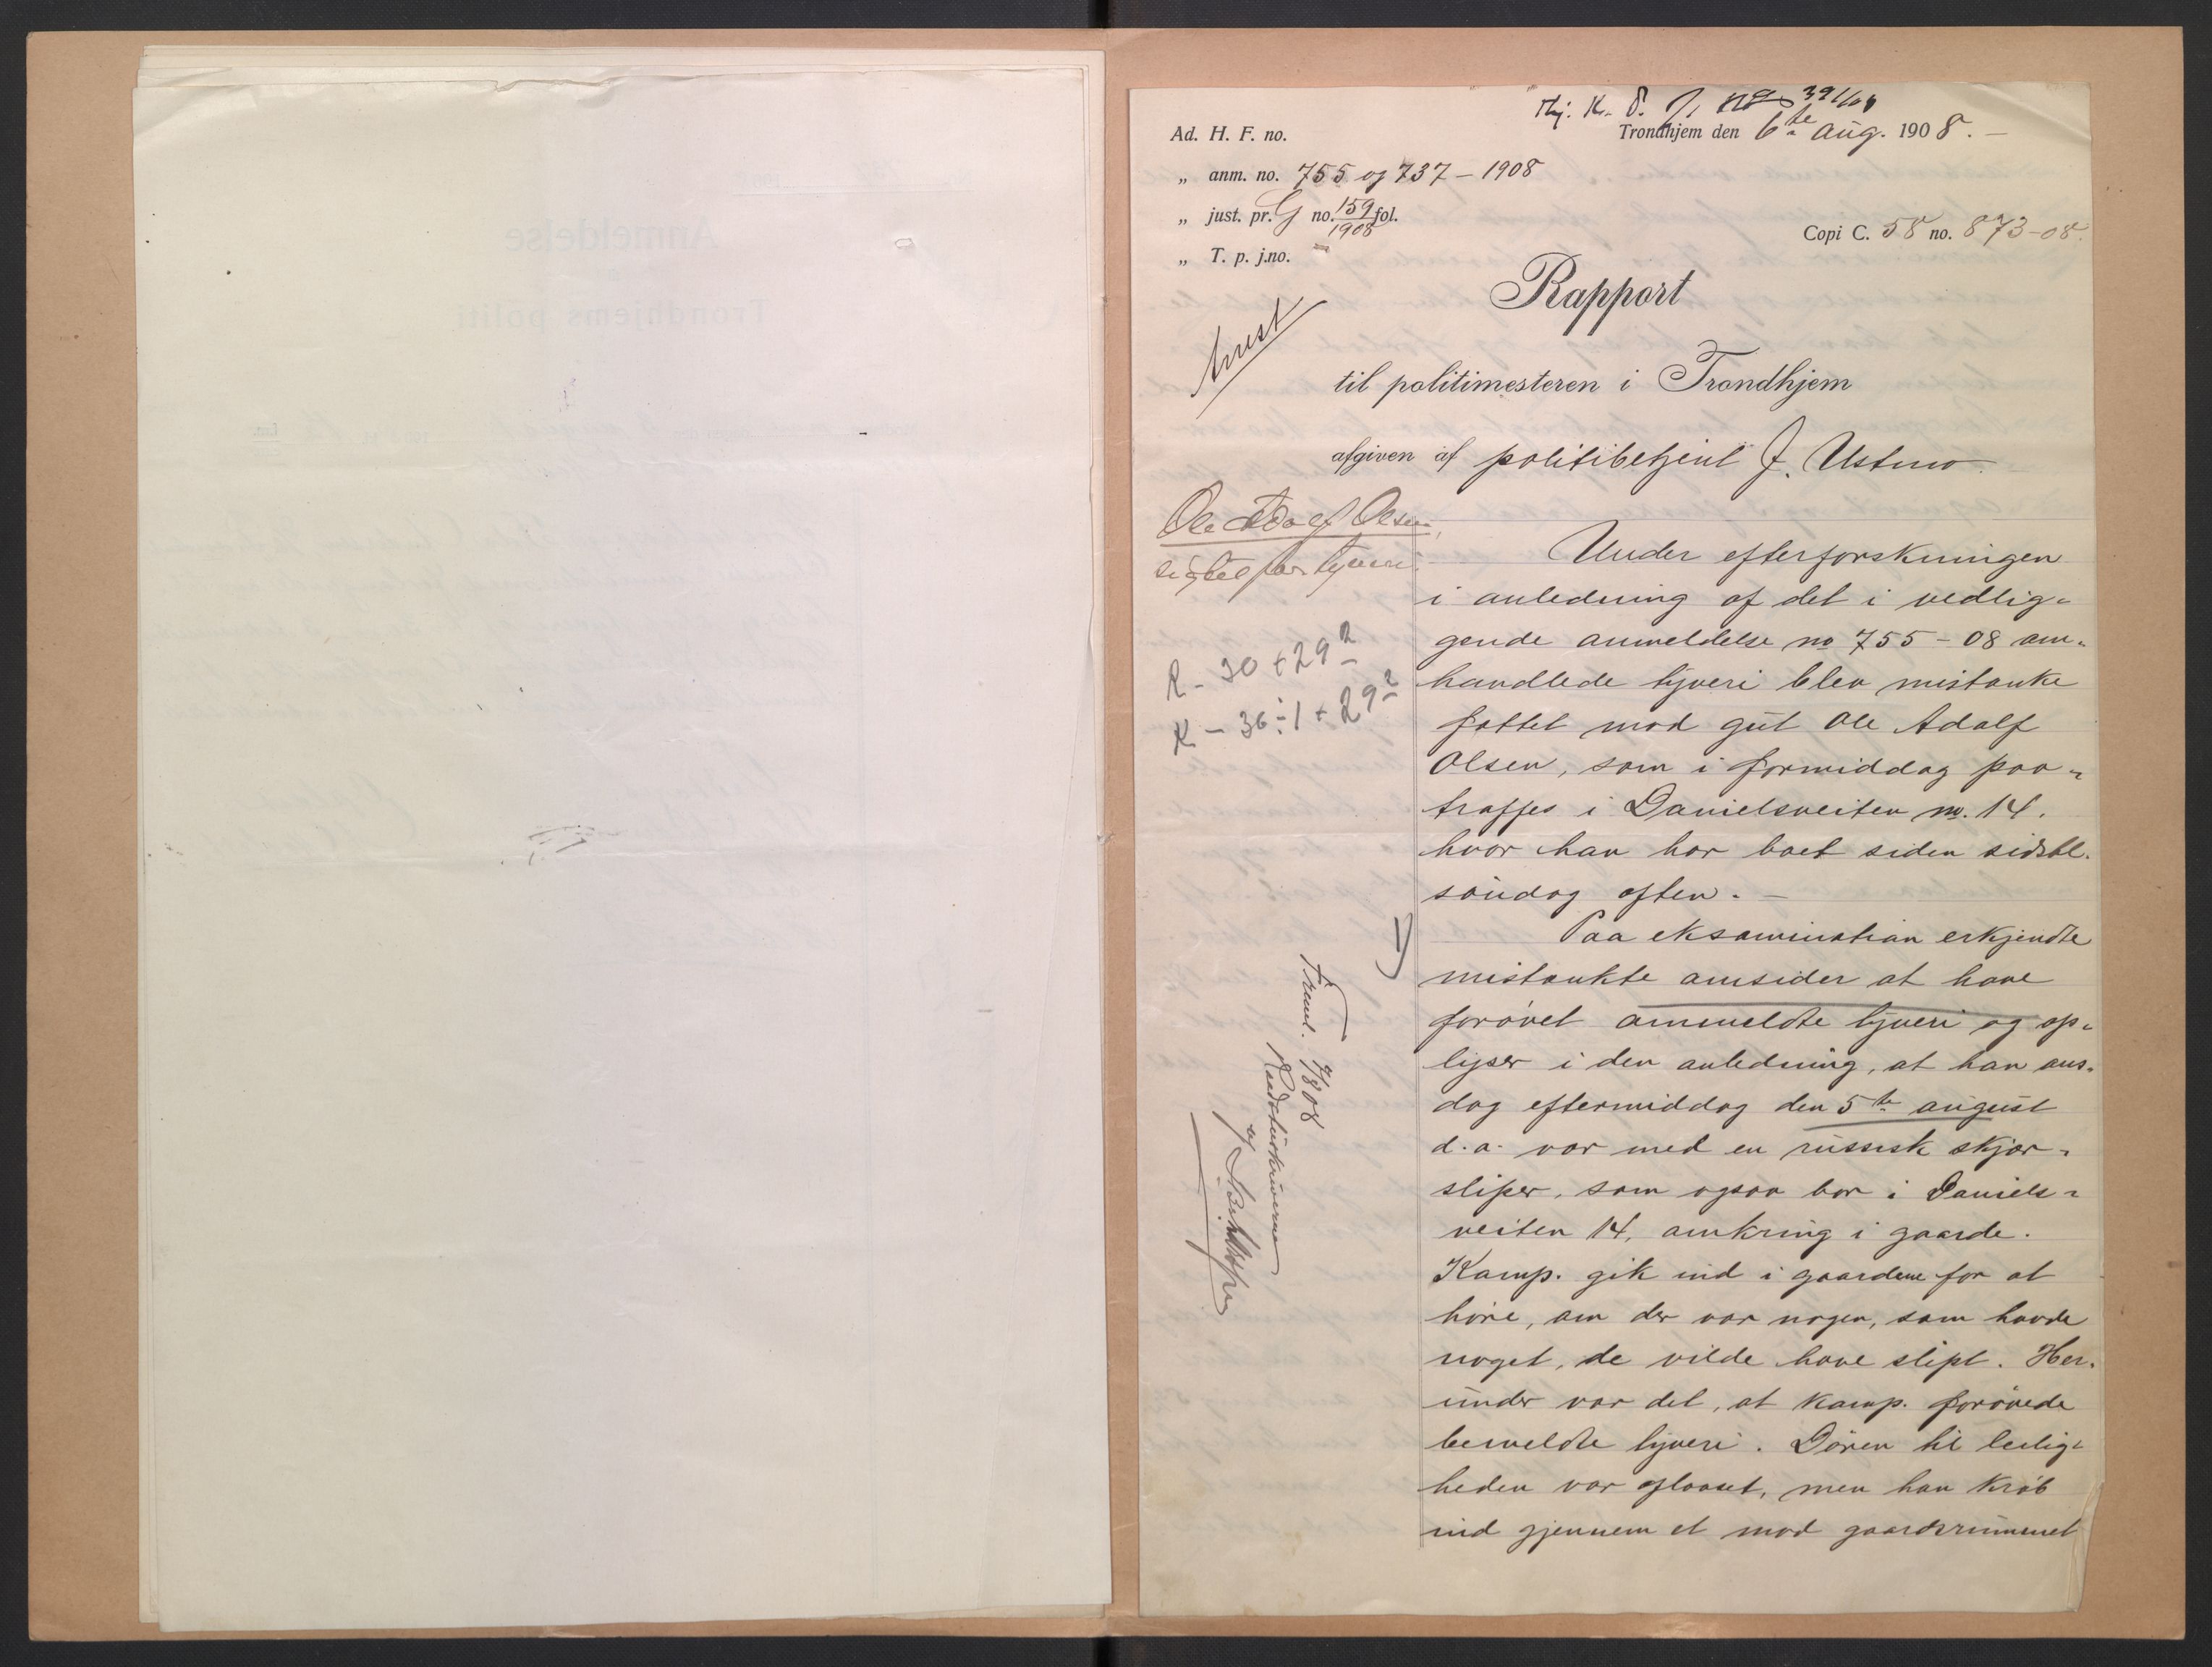 Trondhjem den 6te aug. 1908. –
Ad. H. F. no.
„ anm. no. 755 og 737 – 1908
„ just. pr. G no. 159/1908 fol.
Copi C. 58 no. 873-08.
„ T. p. j.no. –
Rapport
arrest
til politimesteren i Trondhjem
afgiven af politibetjent J. Ustmo.
Ole Adolf Olsen,
sigtet for tyveri.
R – 30 + 29²
K – 36 ÷ 1 + 29²
Under efterforskningen
i anledning af det i vedlig-
gende anmeldelse no 755 – 08 om-
handlede tyveri blev mistanke
fattet mod gut Ole Adolf
Olsen, som i formiddag paa-
traffes i Danielsveiten no. 14,
hvor han har boet siden sidstl.
søndag aften. –
Paa eksamination erkjendte
mistænkte omsider at have
forøvet anmeldte tyveri og op-
lyser i den anledning, at han ons-
dag eftermiddag den 5te august
d.a. var med en russisk skjær-
sliper, som ogsaa bor i Daniels-
veiten 14, omkring i gaarde.
Komp. gik ind i gaardene for at
høre, om der var nogen, som havde
noget, de vilde have slipt. Her-
under var det, at komp. forøvede
bemeldte tyveri. Døren til leilig-
heden var aflaaset, men han krøb
ind gjennem et mod gaardsrummet
Freml. 7/8 08